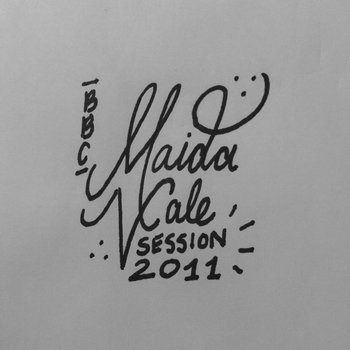 BBC
Maida
Vale
SESSION
2011